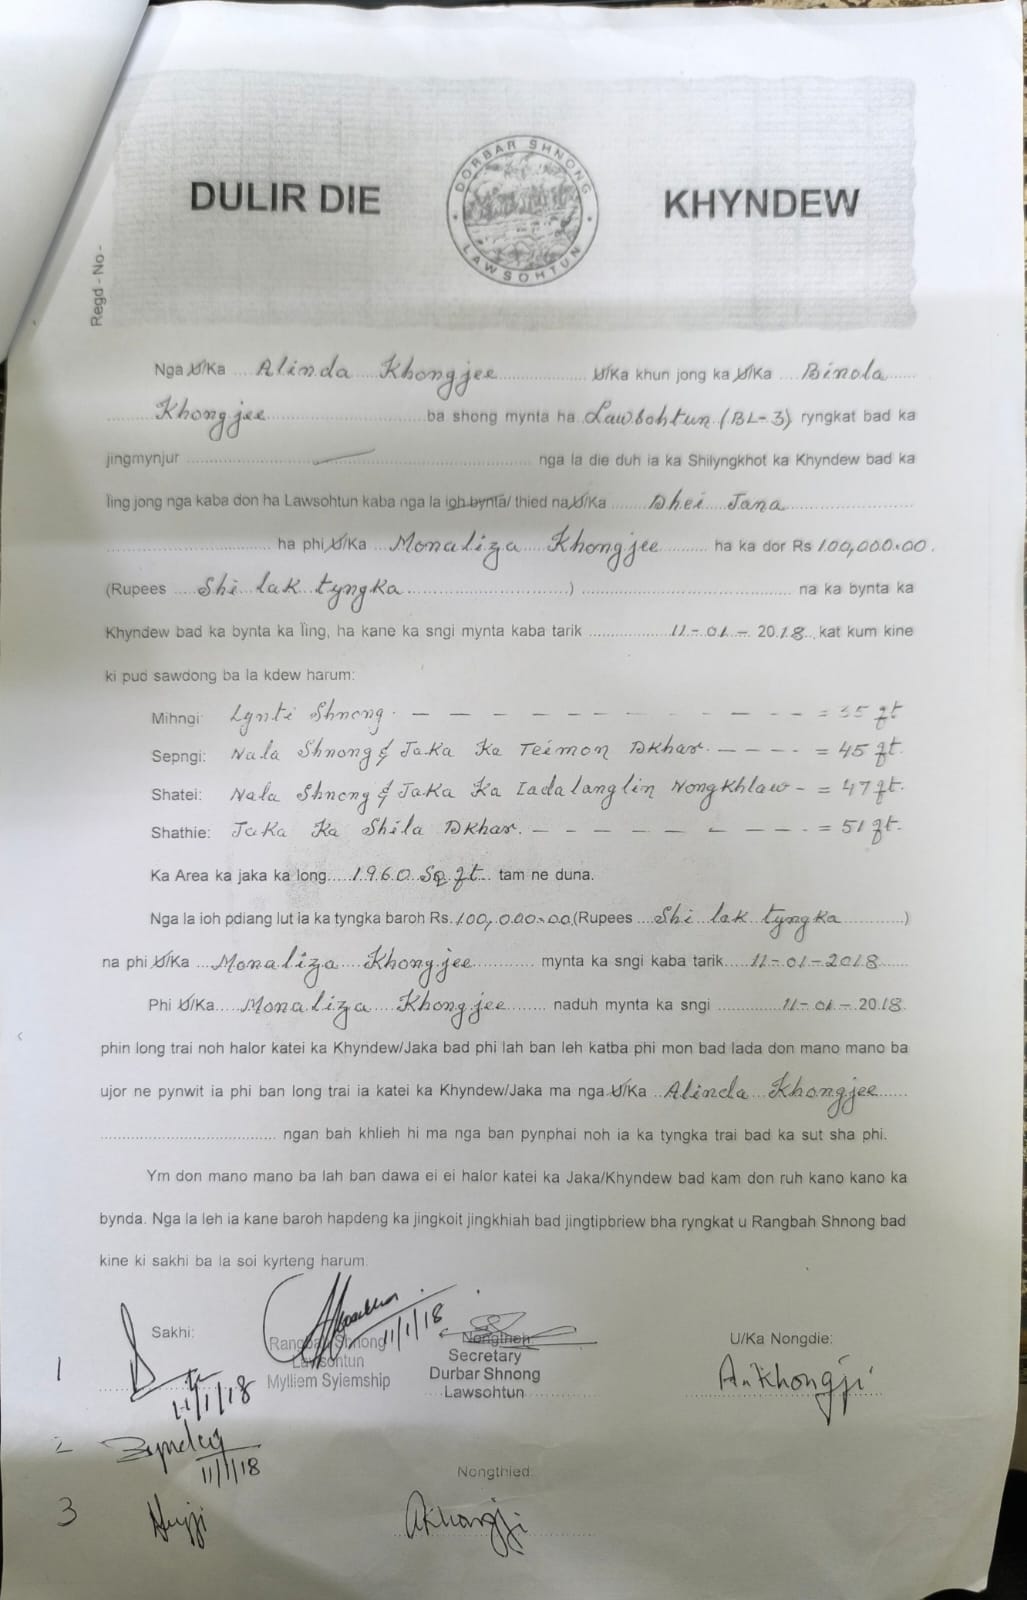 DULIR DIE KHYNDEW
DORBAR SHNONG
LAWSOHTUN
Regd - No -
Nga U/Ka .... Alinda Khongjee .............. U/Ka khun jong ka U/Ka .... Binola ......
........ Khongjee ........................ ba shong mynta ha Lawsohtun (BL-3) ryngkat bad ka
jingmynjur ........................................................ nga la die duh ia ka Shilyngkhot ka Khyndew bad ka
Ïing jong nga kaba don ha Lawsohtun kaba nga la ioh bynta/ thied na U/Ka ....... Dhei Tana ........................
............................. ha phi U/Ka ... Monaliza Khongjee ......... ha ka dor Rs 100,000.00.
(Rupees .... Shi lak tyngka ..............................) ..................................... na ka bynta ka
Khyndew bad ka bynta ka Ïing, ha kane ka sngi mynta kaba tarik .............. 11-01-2018.., kat kum kine
ki pud sawdong ba la kdew harum:
Mihngi: Lynti Shnong. - - - - - - - - - - - - = 35 ft
Sepngi: Nala Shnong & Jaka Ka Teimon Dkhar. - - - - = 45 ft.
Shatei: Nala Shnong & Jaka Ka Iadalanglin Nongkhlaw - = 47 ft.
Shathie: Jaka Ka Shila Dkhar. - - - - - - - - - = 51 ft.
Ka Area ka jaka ka long.....1960 Sq ft... tam ne duna.
Nga la ioh pdiang lut ia ka tyngka baroh Rs. 100,000.00 (Rupees .... Shi lak tyngka .............)
na phi U/Ka ... Monaliza Khongjee ............. mynta ka sngi kaba tarik.... 11-01-2018 ......
Phi U/Ka..... Monaliza Khongjee ........ naduh mynta ka sngi ............. 11-01-2018.
phin long trai noh halor katei ka Khyndew/Jaka bad phi lah ban leh katba phi mon bad lada don mano mano ba
ujor ne pynwit ia phi ban long trai ia katei ka Khyndew/Jaka ma nga U/Ka .. Alinda Khongjee ......
................................... ngan bah khlieh hi ma nga ban pynphai noh ia ka tyngka trai bad ka sut sha phi.
Ym don mano mano ba lah ban dawa ei ei halor katei ka Jaka/Khyndew bad kam don ruh kano kano ka
bynda. Nga la leh ia kane baroh hapdeng ka jingkoit jingkhiah bad jingtipbriew bha ryngkat u Rangbah Shnong bad
kine ki sakhi ba la soi kyrteng harum.
Sakhi:
Rangbah Shnong
Lawsohtun
Mylliem Syiemship
11/1/18
Nongthoh:
Secretary
Durbar Shnong
Lawsohtun
U/Ka Nongdie:
1
11/1/18
2
11/1/18
Nongthied:
3